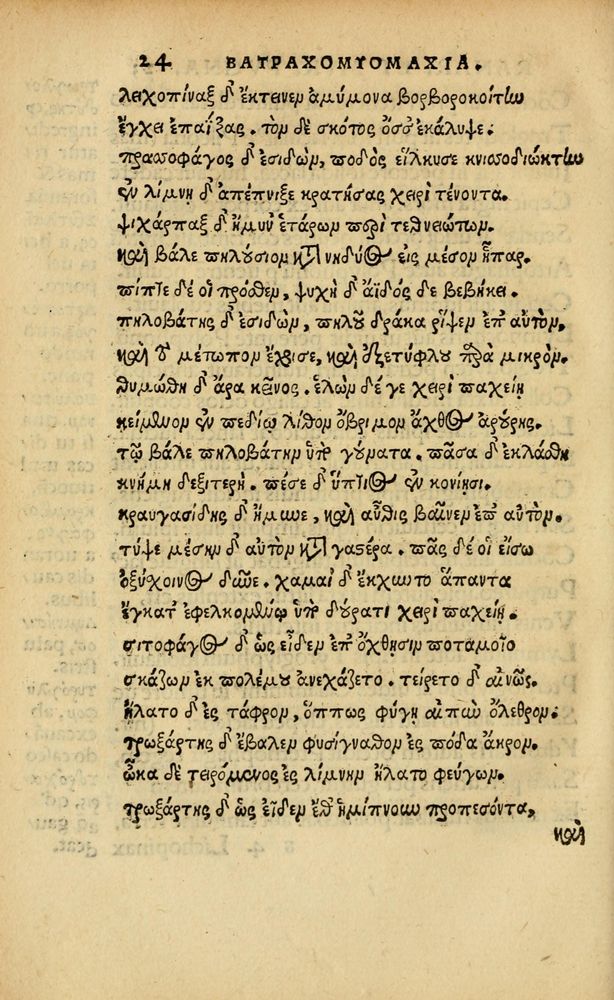 24 ΒΑΤΡΑΧΟΜΥΟΜΑΧΙΑ.
λειχοπίναξ δ' ἔκτεινεν ἀμύμονα βορβοροκοίτην
ἔγχει ἐπαΐξας. τὸν δὲ σκότος ὄσσ' ἐκάλυψε.
πρασσοφάγος δ' ἐσιδὼν, ποδὸς εἵλκυσε κνισσοδιώκτην
ἐν λίμνῃ δ' ἀπέπνιξε κρατήσας χειρὶ τένοντα.
ψιχάρπαξ δ' ἤμυν' ἑτάρων περὶ τεθνειώτων.
καὶ βάλε πηλούσιον κατὰ νηδύος εἰς μέσον ἧπαρ.
πίπτε δέ οἱ πρόσθεν, ψυχὴ δ' ἀϊδός δε βεβήκει.
πηλοβάτης δ' ἐσιδὼν, πηλοῦ δράκα ῥίψεν ἐπ' αὐτὸν,
καὶ τὸ μέτωπον ἔχρισε, καὶ ἐξετύφλου παρὰ μικρὸν.
θυμώθη δ' ἄρα κεῖνος. ἑλὼν δέ γε χειρὶ παχείῃ
κείμενον ἐν πεδίῳ λίθον ὄβριμον ἄχθος ἀρούρης.
τῷ βάλε πηλοβάτην ὑπὸ γούνατα. πᾶσα δ' ἐκλάσθη
κνήμη δεξιτερὴ. πέσε δ' ὕπτιος ἐν κονίῃσι.
κραυγασίδης δ' ἤμυνε, καὶ αὖθις βαῖνεν ἐπ' αὐτὸν.
τύψε μέσην δ' αὐτὸν κατὰ γαστέρα. πᾶς δέ οἱ εἴσω
ὀξύσχοινος δῦνε. χαμαὶ δ' ἔκχυντο ἅπαντα
ἔγκατ' ἐφελκομένῳ ὑπὸ δούρατι χειρὶ παχείῃ.
σιτοφάγος δ' ὡς εἶδεν ἐπ' ὄχθῃσιν ποταμοῖο
σκάζων ἐκ πολέμου ἀνεχάζετο. τείρετο δ' αἰνῶς.
ἥλατο δ' ἐς τάφρον, ὅππως φύγῃ αἰπὺν ὄλεθρον.
τρωξάρτης δ' ἔβαλεν φυσίγναθον ἐς πόδα ἄκρον.
ὦκα δὲ τειρόμενος ἐς λίμνην ἥλατο φεύγων.
τρωξάρτης δ' ὡς εἶδεν ἔθ' ἡμίπνουν προπεσόντα,
καὶ